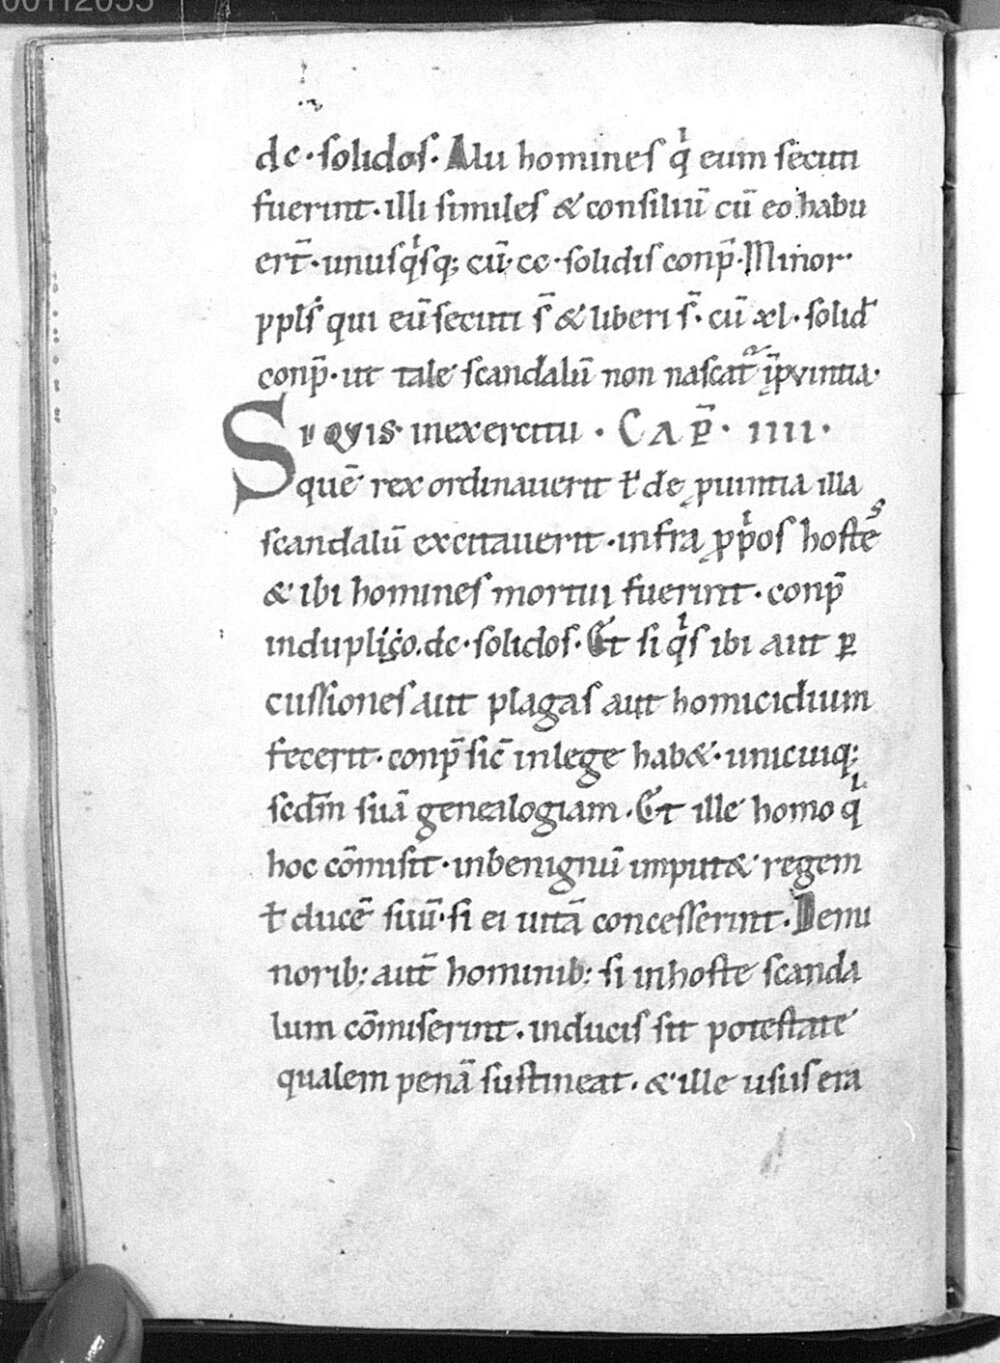 00112055
dc · solidos · Alii homines qͥ eum secuti
fuerint · illi similes & consiliū cū eo habu
ert̄ · unusqͥsq; cū · cc · solidis conp̄ · Minor
pplꝭ qui eū secuti s̄ & liberi s̄ · cū xl · solid
conp̄ · ut tale scandalū non nascat᷑ ī ꝓvintia ·
SI QVIS in exercitu · CAP̄ · IIII ·
quē rex ordinauerit ł de ꝓuintia illa
scandalū excitauerit · infra ꝓpͥos hostēs
& ibi homines mortui fuerint · conp̄
in dupligo. dc · solidos · Et si qͥs ibi aut ꝑ
cussiones aut plagas aut homicidium
fecerit · conp̄ sic̄ in lege hab& · unicuiq;
scdm̄ suā genealogiam · Et ille homo qͥ
hoc cōmisit · in benignū imput& regem
ł ducē suū · si ei uitā concesserint · De mi
norib: aut̄ hominib: si in hoste scanda
lum cōmiserint · in ducis sit potestate
qualem penā sustineat · & ille usus era